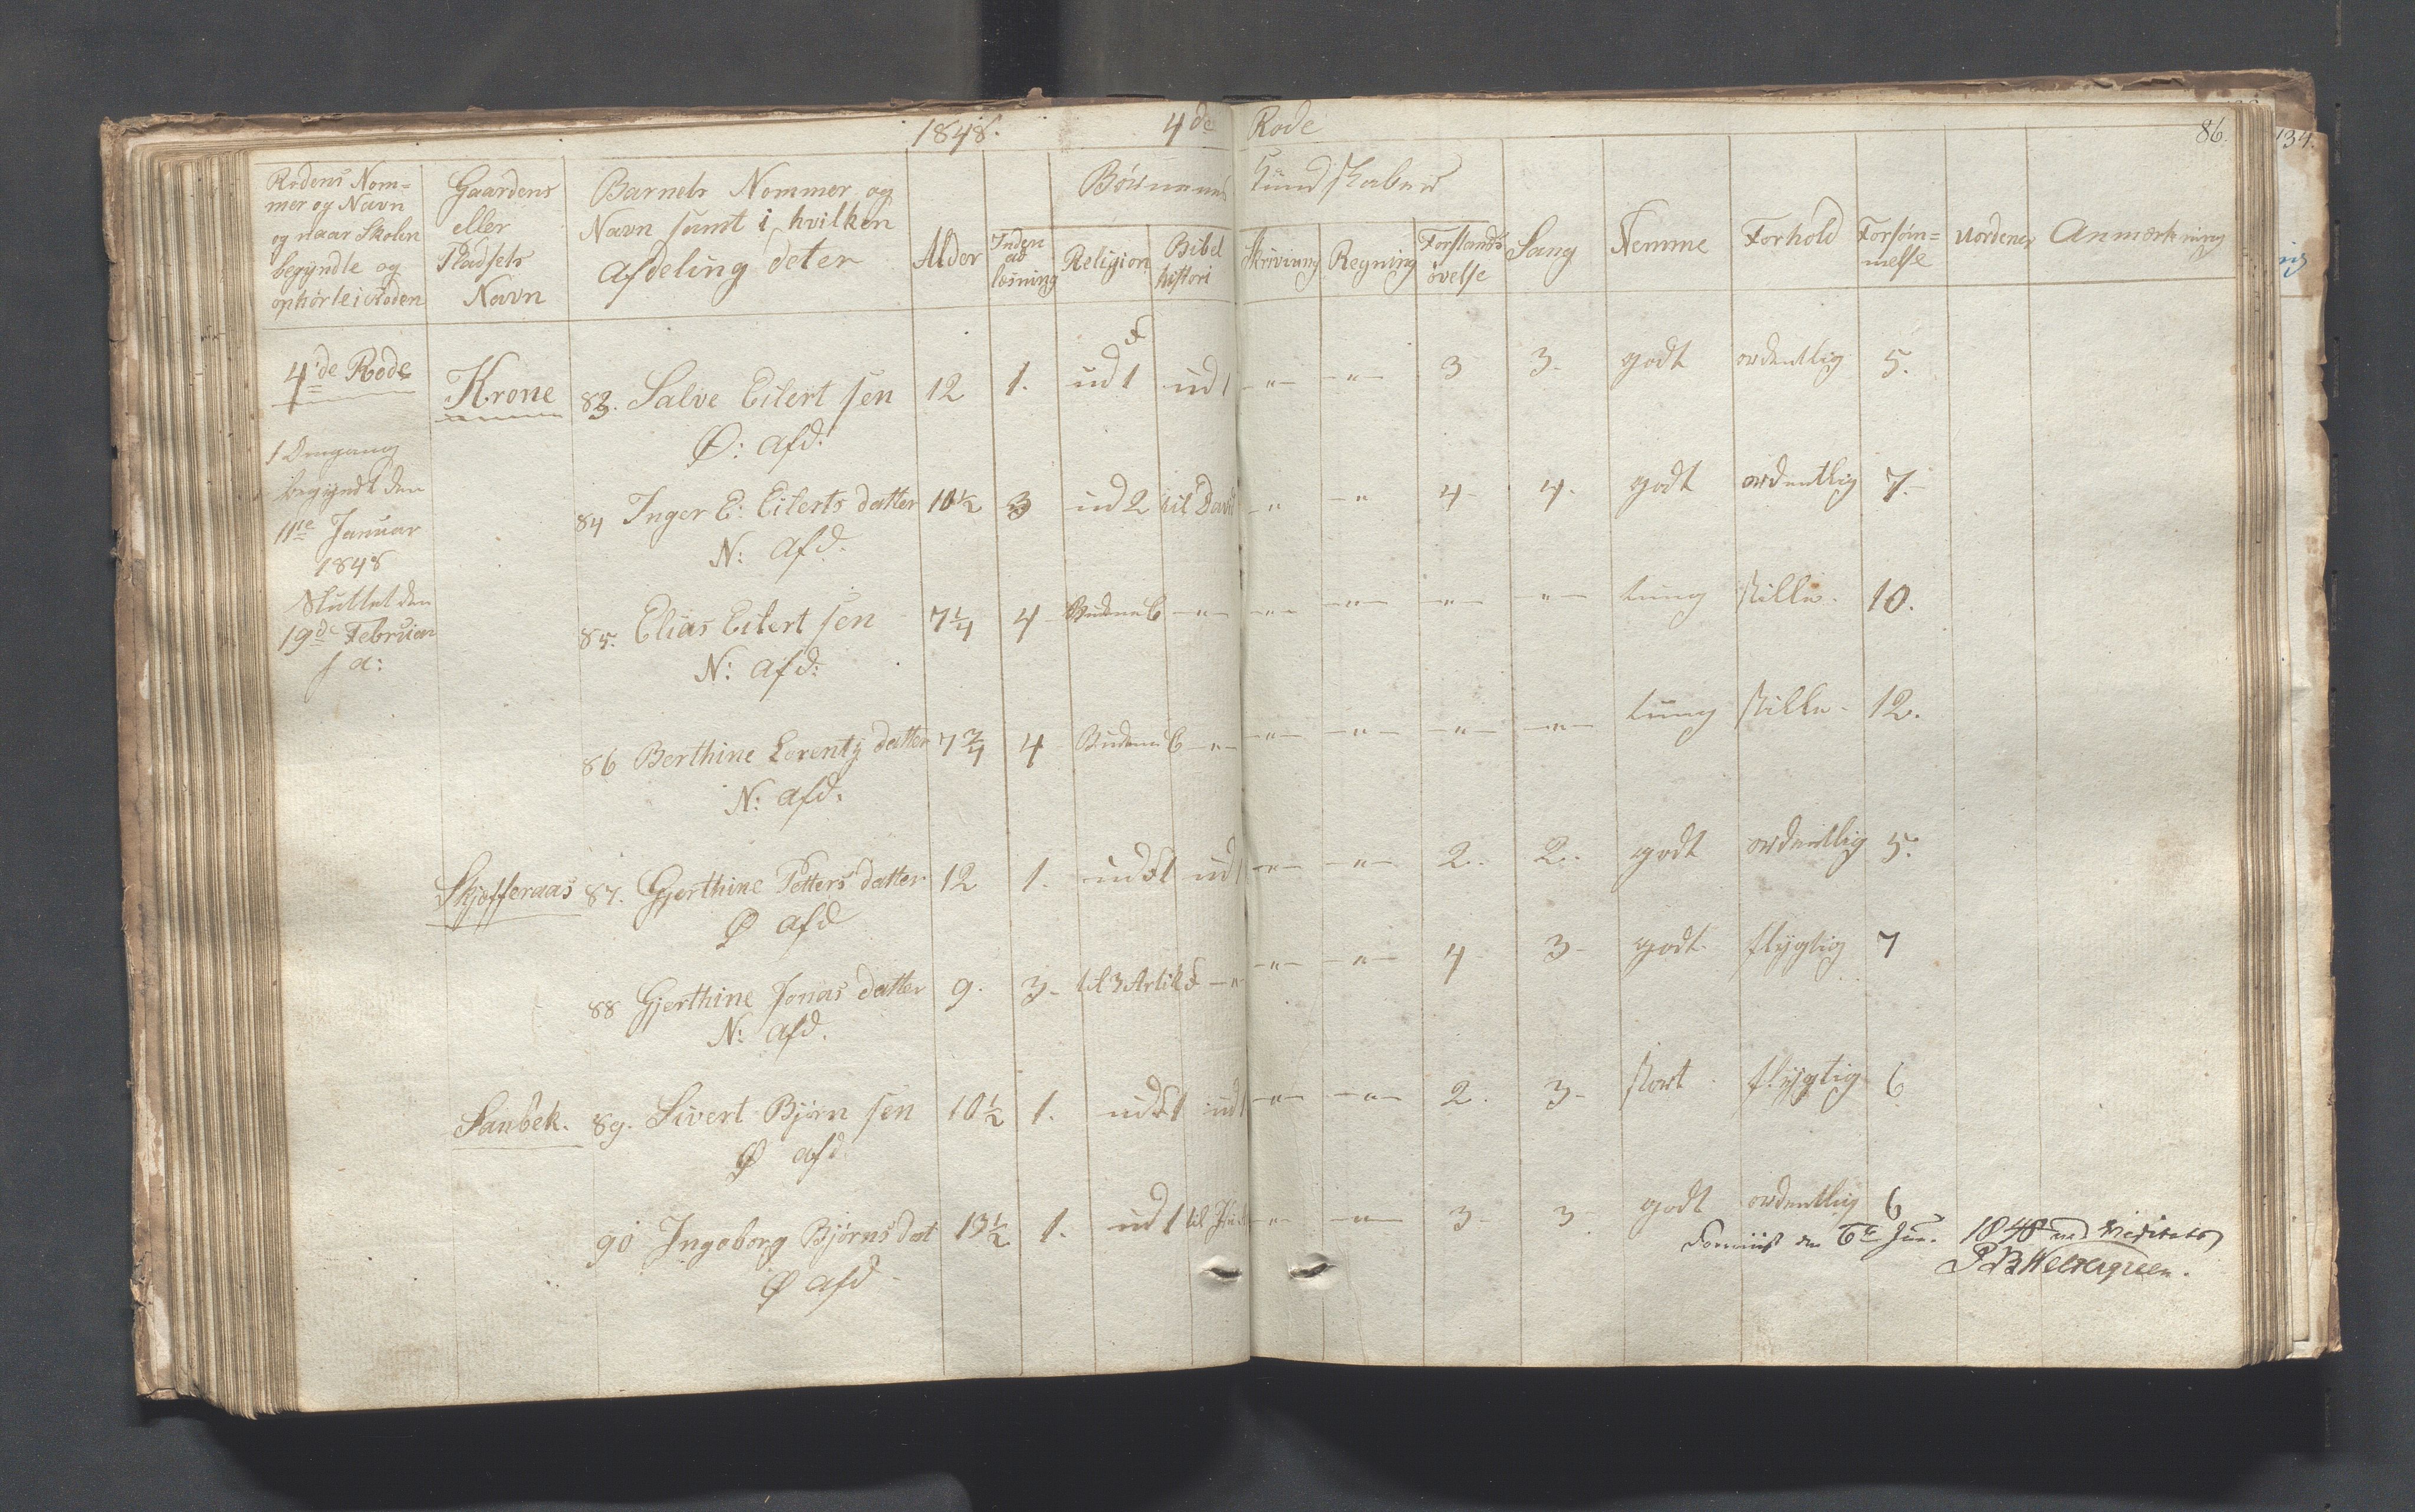 1848. 4de Rode 86.
134.
Rodens Nom=
mer og Navn
og naar Skolen
begyndte og
ophørte i Roden
Gaardens
eller
Pladsets
Navn
Barnets Nommer og
Navn samt i hvilken
Afdeling det er
Alder
Børnenes Kundskaber
Inden ad
læsning
Religion
Bibel
histori
Skrivning
Regning
Forstands
øvelse
Sang
Nemme
Forhold
Forsøm=
melse
Uorden
Anmærkning
4de Rode Krone 83. Salve Eilert sen 12 1. ud 1 ud 1 -"- -"- 3 3- godt ordentlig 5.
Ø: Afd:
1 Omgang
begyndt den
11te Januar
1848
Sluttet den
19de Februar
s a:
84 Inger E: Eilerts datter 10½ 3 ud 2 til David -" -" 4- 4. godt ordentlig 7.-
N: Afd.
85. Elias Eilert sen 7¼ 4 Budene 6 -"- -"- -"- -"- -"- tung stille. 10.
N: Afd:
86 Berthine Lorentz datter 7¾ 4 Budene 6 -"- -"- -"- -"- -"- tung stille - 12.
N: Afd.
Skjefferaas 87. Gjerthine Petters datter 12 1. ud 1 ud 1 -"- -"- 2.. 2.. godt ordentlig 5.
Ø Afd
88 Gjerthine Jonas datter 9. 3- til 3 Artikel -" -"- -"- 4- 3- godt. flygtig 7
N: Afd.
Sanbek. 89. Sivert Bjørn sen 10½ 1. ud 1 ud 1 -"- -"- 2. 3- stort. flygtig 6
Ø Afd.
90 Ingeborg Bjørns dat 13½ 1. ud 1 til -"- -"- 3- 3- godt ordentlig 6
Ø Afd-
den 6te Jun. 1848